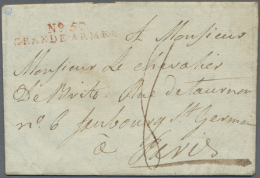 No 5
GRANDE ARMÉE
A Monsieur
Monsieur Le chevalier
De Brito Rue de tournon
no. 6 feaubourg St Germain
à Paris